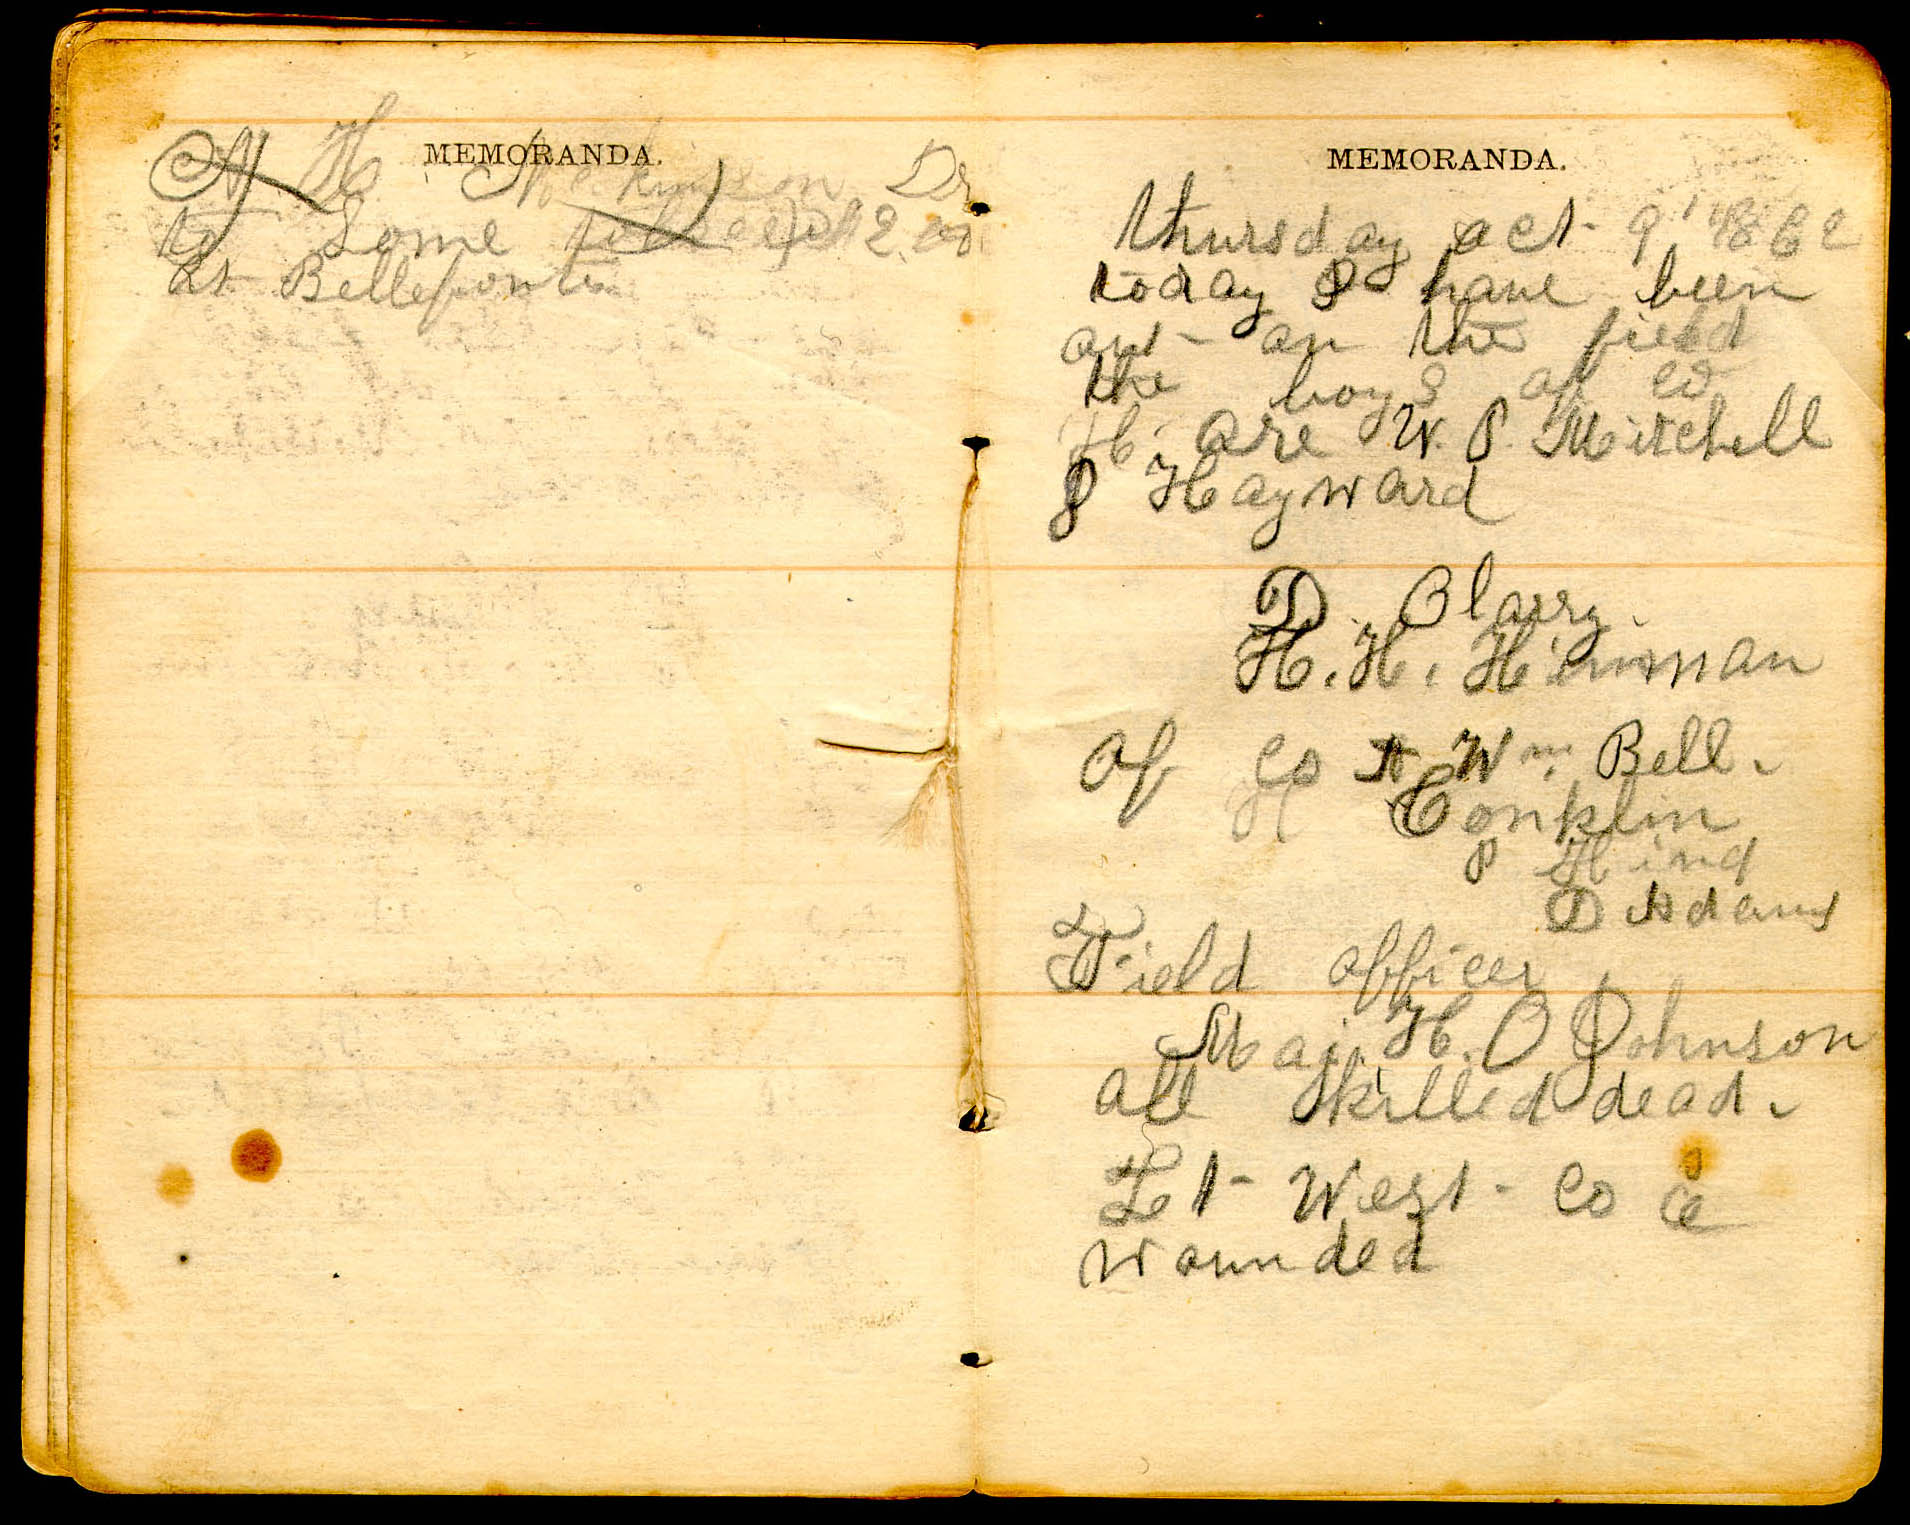 MEMORANDA.
A H Mckinson Dr
to Some 2.00
at Bellefonte
MEMORANDA.
thursday oct 9' 1862
today I have been
out on the field
the boys of co
H. are W. P. Mitchell
J Hayward
D. Clarry.
H. H. Hinman
of co A Wm. Bell.
Conklin
J Hind
D Adams
Field officer
Maj. H. O Johnson
all killed dead.
Let West Co C
wounded